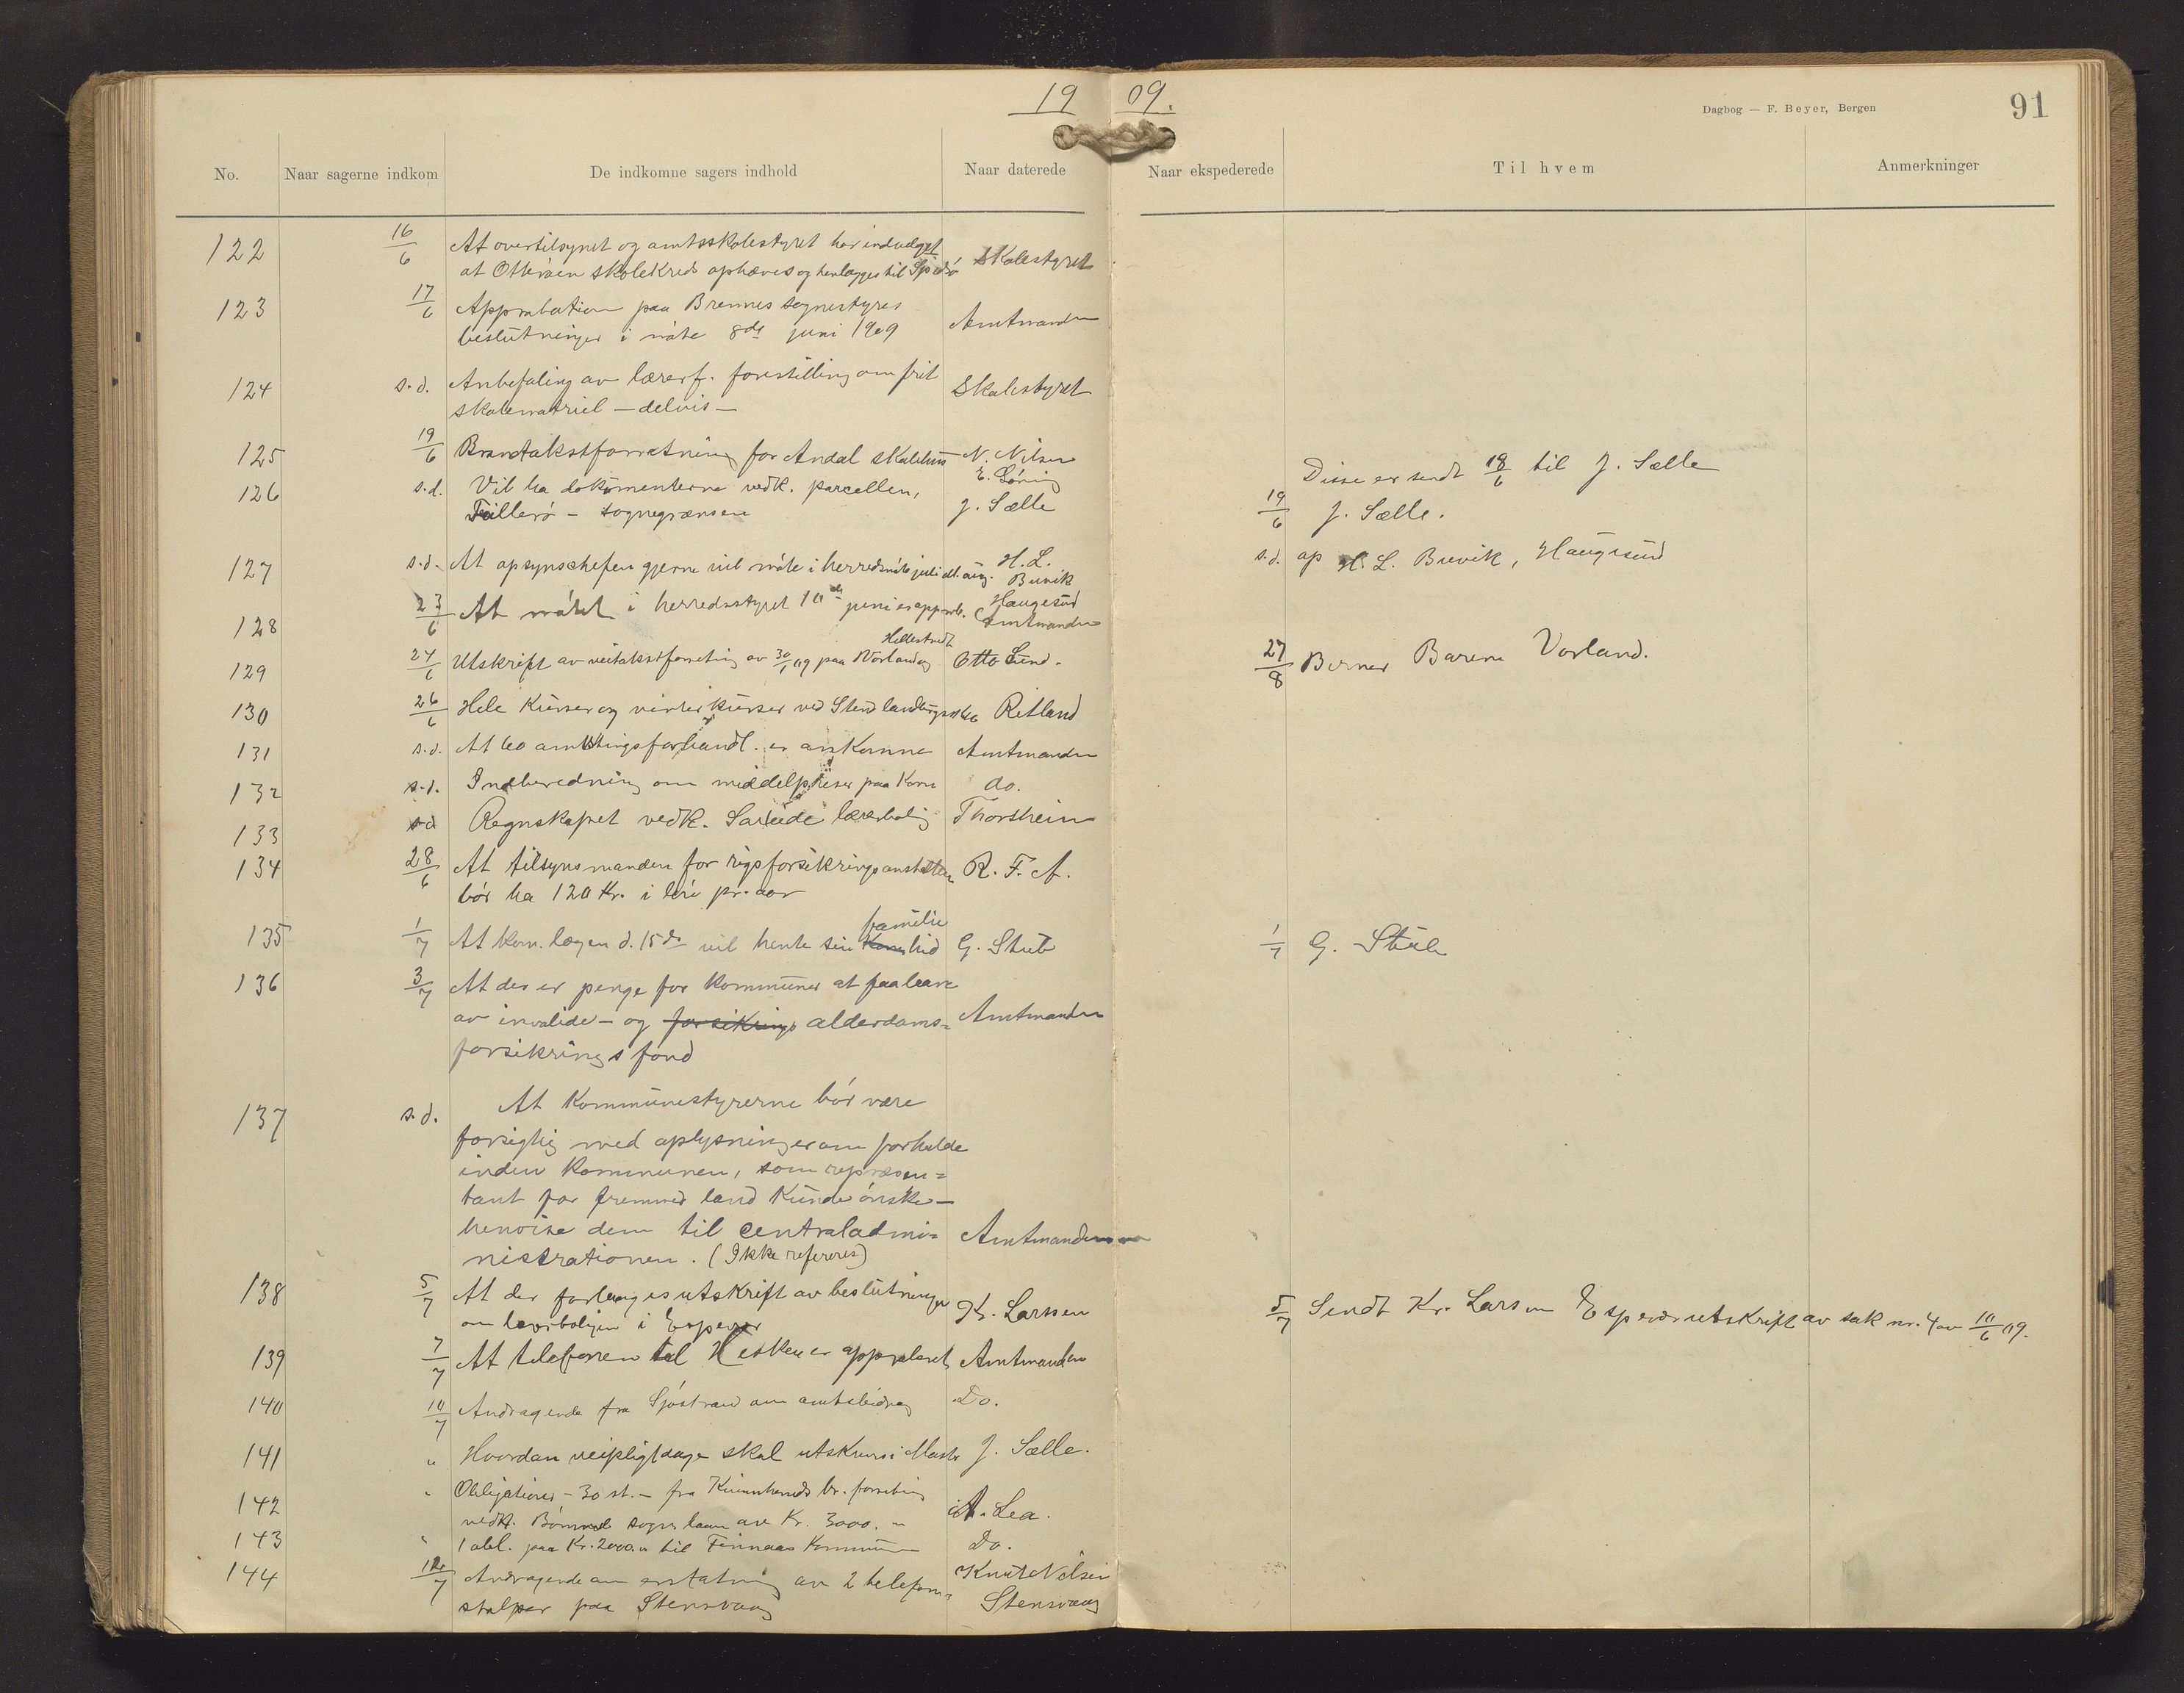 19 09.
Dagbog — F. Beyer, Bergen
91
No. Naar sagerne indkom De indkomne sagers indhold Naar daterede Naar ekspederede Til hvem Anmerkninger
122 16/6 At overtilsynet og amtsskolestyret har indvilget
at Otterøen skolekreds ophæves og henlægges til Spidsø Skolestyret
123 17/6 Approbation paa Bremnes sognestyres
beslutninger i møte 8de juni 1909 Amtmanden
124 s.d. Anbefaling av lærerf. forestilling om frit
skolematriel — delvis — Skolestyret
125 19/6 Brandtakstforretning for Andal skolehus N. Nilsen
E. Løning
Disse er sendt 18/6 til J. Sælle
126 s.d. Vil ha dokumenterne vedk. parcellen,
Füllerø — sognegrænsen J. Sælle 19/6 J. Sælle.
127 s.d. At opsynschefen gjerne vil møte i herredsmøte juli el. aug. H. L.
Buvik
Haugesund s.d. op H. L. Buvik, Haugesund
128 23/6 At møtet i herredsstyret 10de juni er approb. Amtmanden
Hellestvedt
129 24/6 Utskrift av veitakstforretning av 30/1 09 paa Vorland og Otto Lund. 27/8 Berner Baren Vorland.
130 26/6 Hele Kurser og vinterkurser ved Stend landbrugsskole Retland
131 s.d. At 60 amtstingsforhandl. er ankomne Amtmanden
132 s.d. Indberedning om middelpriser paa Korn do.
133 s.d. Regnskapet vedk. lærerbolig Thorshein
134 28/6 At tilsynsmanden for rigsforsikringsanstalten
bør ha 120 Kr. i løn pr. aar R. F. A.
familie
135 1/7 At kom. lægen d. 15de vil hente sin hid G. Stub 1/7 G. Stub
136 3/7 At der er penge for Kommuner at faa laane
av invalide- og forsikrings alderdoms-
forsikringsfond Amtmanden
137 s.d. At Kommunestyrerne bør være
forsigtig med oplysninger om forholde
inden Kommunen, som repræsen-
tant for fremmed land Kunde ønske —
henvise dem til centraladmi-
nistrationen. (Ikke refereres) Amtmanden
138 5/7 At der forlanges utskrift av beslutninger
om lærerboligen i Espevær K. Larssen 5/7 Sendt Kr. Larsen Espevær utskrift av sak nr. 4 av 10/6 09.
139 7/7 At telefonen til Hesken er approberet Amtmanden
140 10/7 Andragende fra Sjøstrand om amtsbidrag Do.
141 " Hvordan veipligtdage skal utskrives i Moster J. Sælle.
142 " Obligationer — 30 st. — fra Kvinnherreds br. forretning
vedk. Bømmel sogns laan av Kr. 3000. — A. Lea.
143 " 1 obl. paa Kr. 2000.00 til Finnaas Kommune Do.
144 12/7 Andragende om erstatning av 2 telefon-
stolper paa Stensvaag Knut Nilsen
Stensvaag